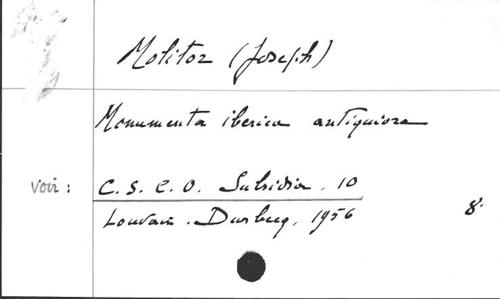 Molitor (Joseph)
Monumenta iberica antiquiora
voir : C. S. C. O. Subsidia. 10
Louvain. Durbecq, 1956 8°